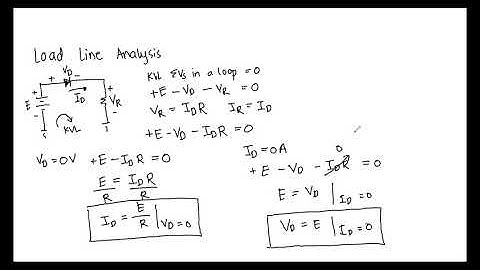 Load Line Analysis
+ V_D -
I_D
E
+
-
KVL
+
V_R
-
KVL ΣVs in a loop = 0
+E - V_D - V_R = 0
V_R = I_D R   I_R = I_D
+E - V_D - I_D R = 0
V_D = 0V   +E - I_D R = 0
E/R = I_D R/R
I_D = E/R | V_D = 0
I_D = 0A
0
+E - V_D - I_D R = 0
E = V_D | I_D = 0
V_D = E | I_D = 0